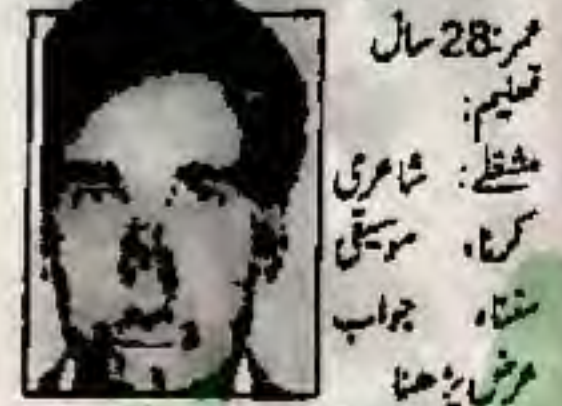 عمر: 28 سال
تعلیم:
مشغلے: شاعری
کرنا، موسیقی
سننا، جواب
عرض پڑھنا